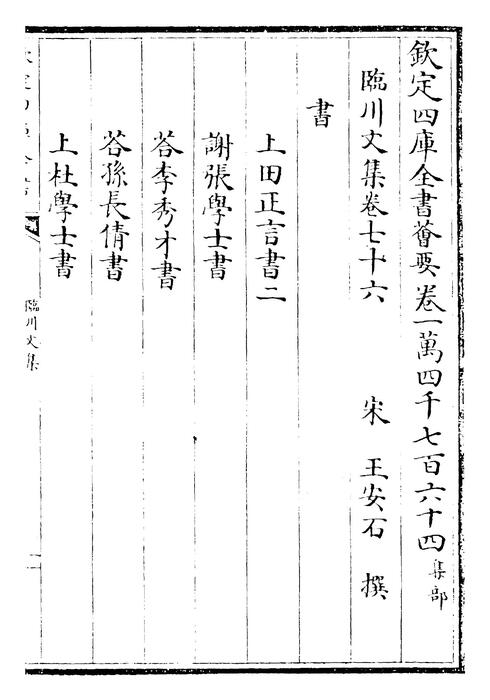 欽定四庫全書薈要卷一萬四千七百六十四 集部
臨川文集卷七十六 宋 王安石 撰
書
上田正言書二
謝張學士書
荅李秀才書
荅孫長倩書
上杜學士書
臨川文集